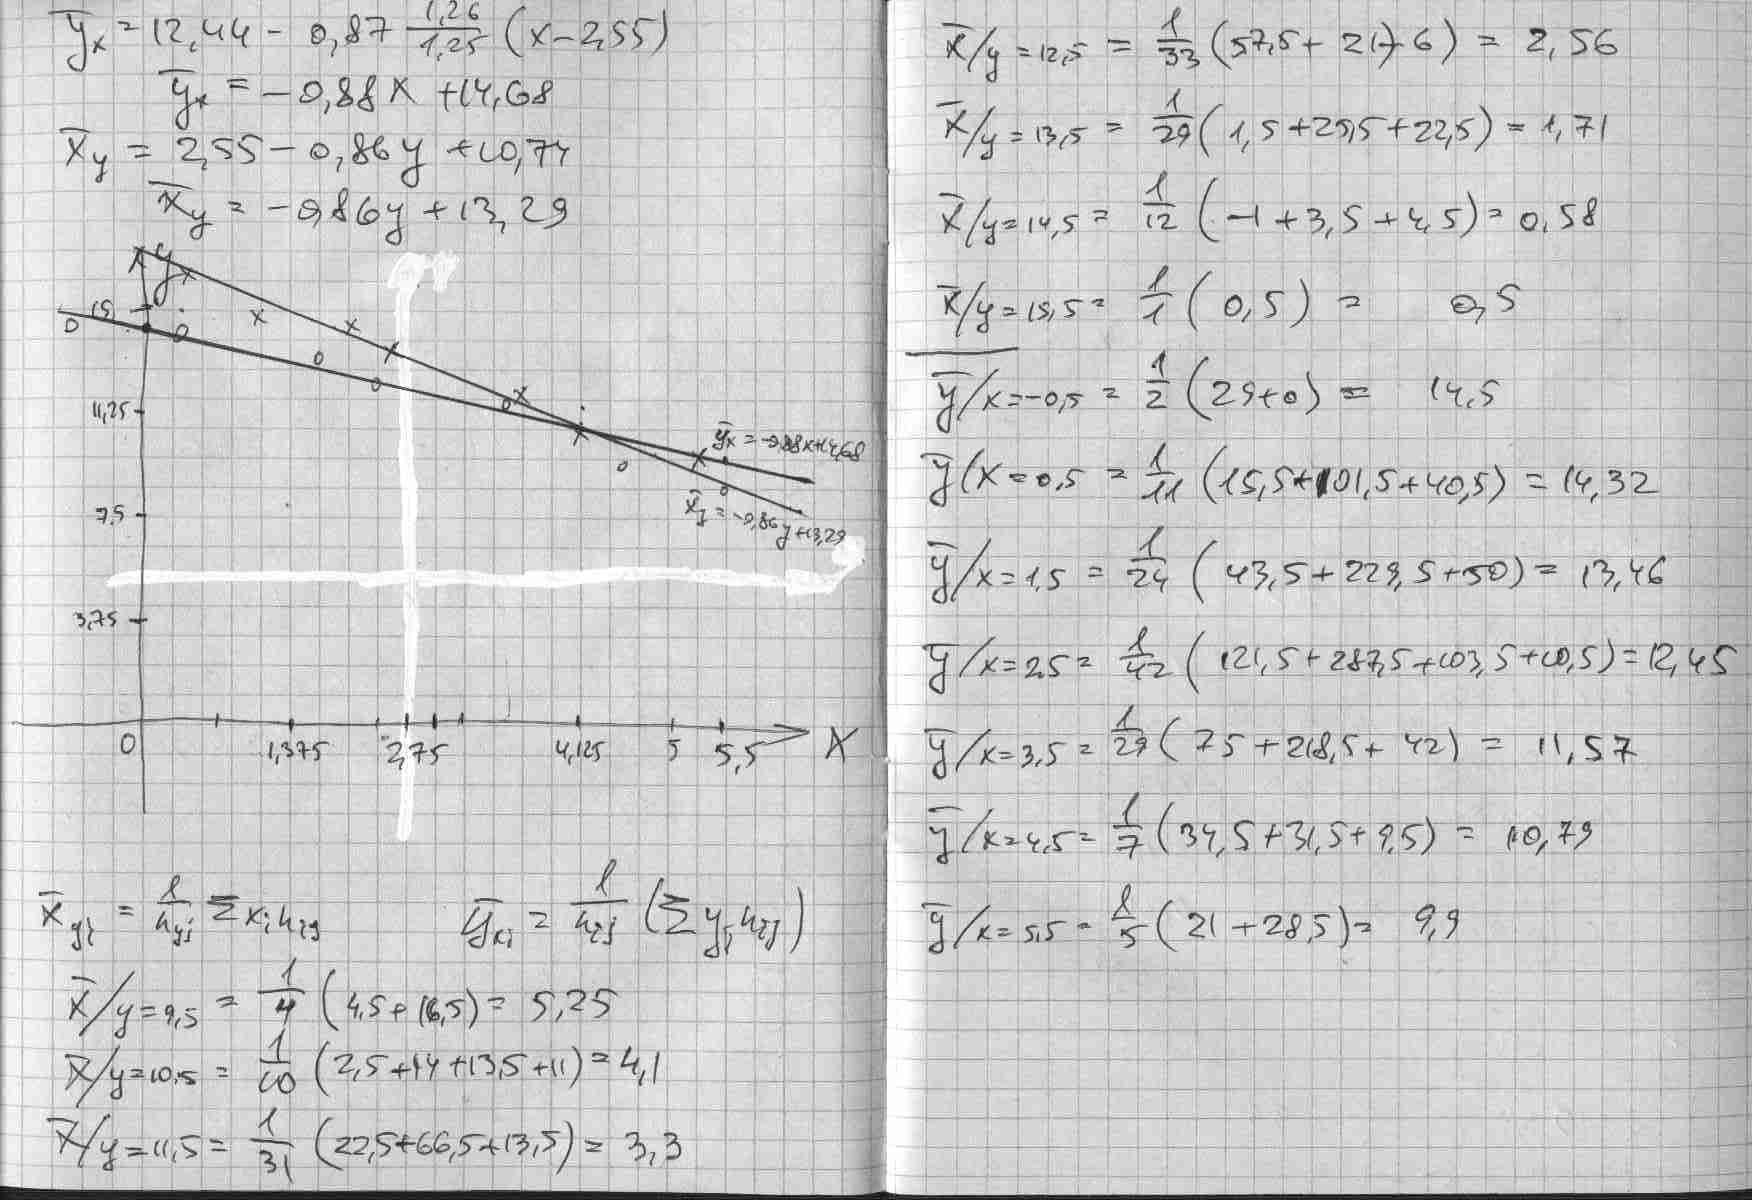 y̅x = 12,44 - 0,87 1,26/1,25 (x - 2,55)
y̅x = -0,88x + 14,68
x̅y = 2,55 - 0,86y + 10,74
x̅y = -0,86y + 13,29
y
15
11,25
y̅x = -0,88x+14,68
7,5
x̅y = -0,86y+13,29
3,75
0 1,375 2,75 4,125 5 5,5 X
x̅yj = 1/nyj Σxi nij y̅xi = 1/nij (Σ yj nij)
x̅/y=9,5 = 1/4 (4,5 + 16,5) = 5,25
x̅/y=10,5 = 1/10 (2,5+14+13,5+11) = 4,1
x̅/y=11,5 = 1/31 (22,5+66,5+13,5) = 3,3
x̅/y=12,5 = 1/33 (57,5 + 21 + 6) = 2,56
x̅/y=13,5 = 1/29 (1,5+25,5+22,5) = 1,71
x̅/y=14,5 = 1/12 (-1 + 3,5 + 4,5) = 0,58
x̅/y=15,5 = 1/1 (0,5) = 0,5
y̅/x=-0,5 = 1/2 (29+0) = 14,5
y̅/x=0,5 = 1/11 (15,5+101,5+40,5) = 14,32
y̅/x=1,5 = 1/24 (43,5+229,5+50) = 13,46
y̅/x=2,5 = 1/42 (121,5+287,5+103,5+10,5) = 12,45
y̅/x=3,5 = 1/29 (75 + 218,5 + 42) = 11,57
y̅/x=4,5 = 1/7 (34,5+31,5+9,5) = 10,79
y̅/x=5,5 = 1/5 (21 + 28,5) = 9,9